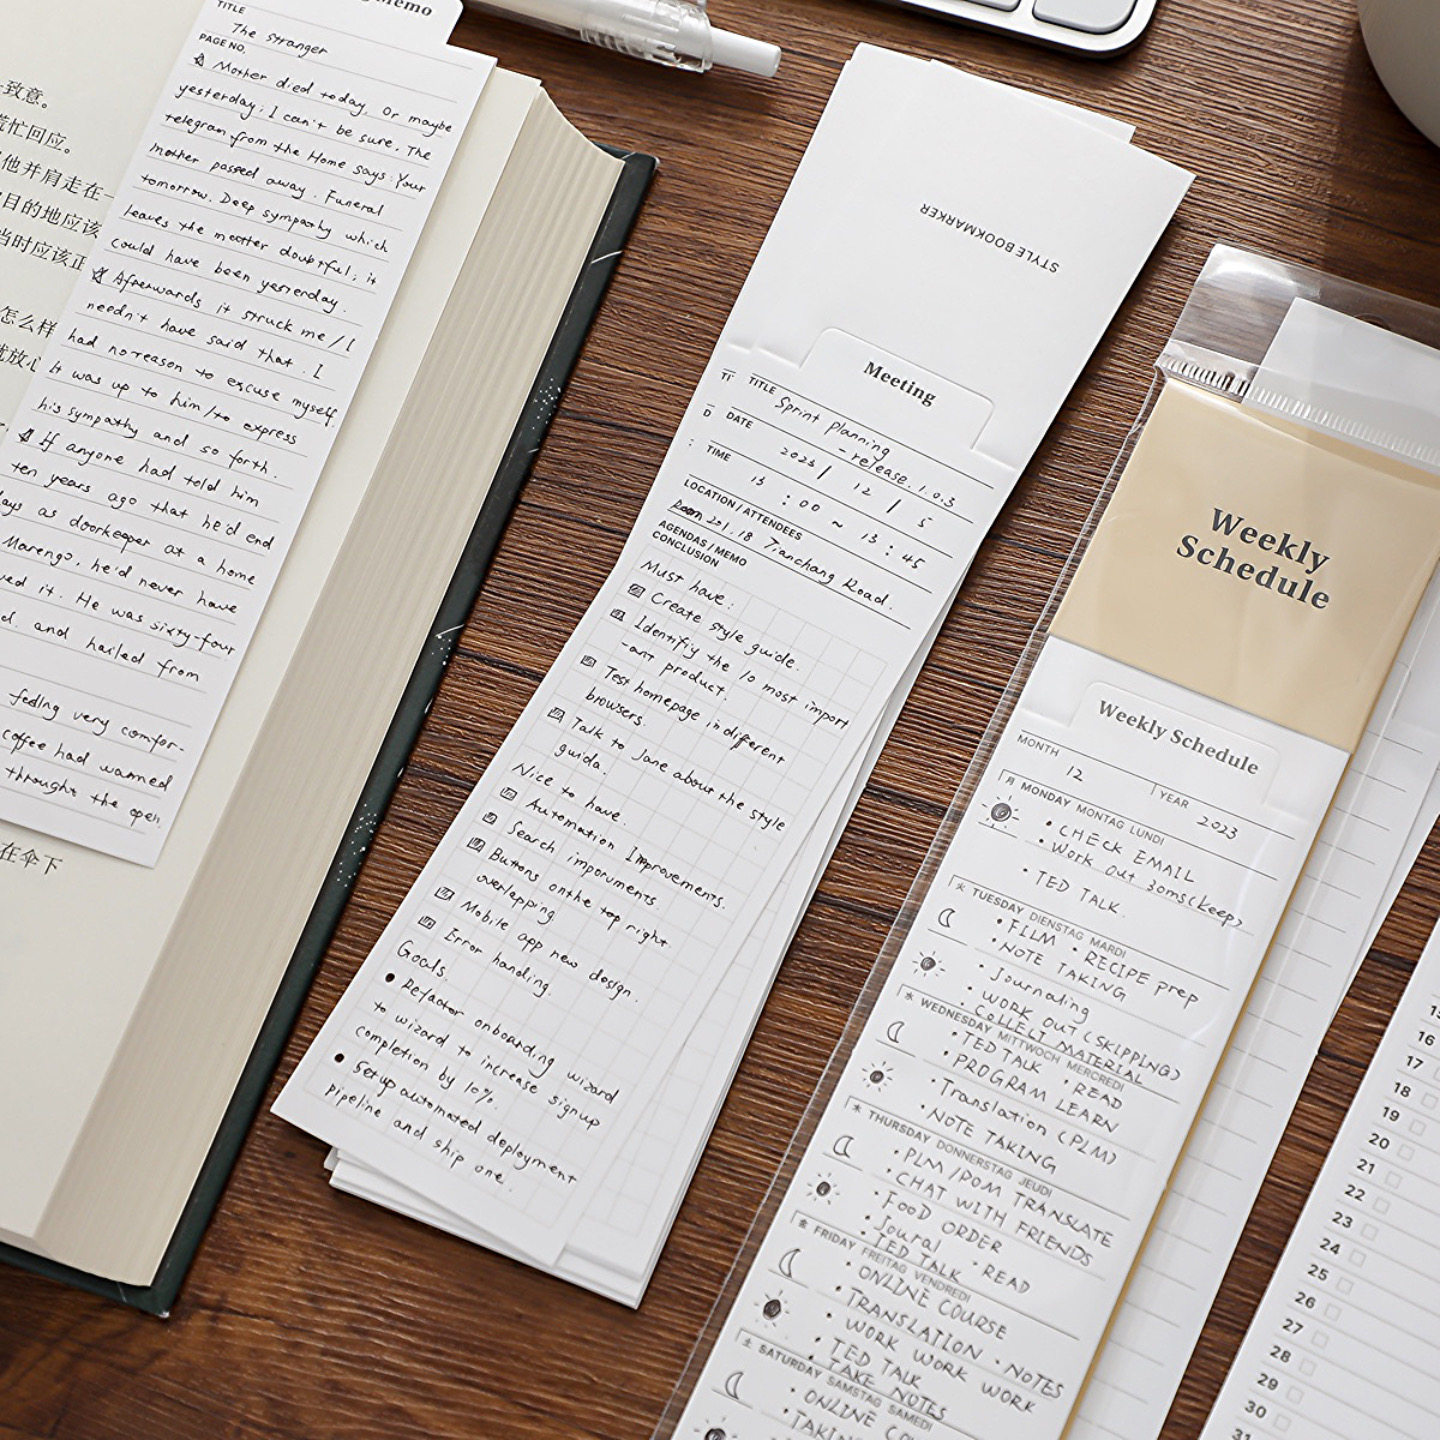 致意。
忙回应。
他并肩走在一
目的地应该
当时应该正
怎么样
就放心
在伞下
Memo
TITLE
The stranger
PAGE NO.
Mother died today. Or maybe
yesterday; I can't be sure. The
telegram from the Home says: Your
mother passed away. Funeral
tomorrow. Deep sympathy which
leaves the matter doubtful; it
could have been yesterday.
Afterwards it struck me / I
needn't have said that. I
had no reason to excuse myself.
It was up to him / to express
his sympathy and so forth.
If anyone had told him
ten years ago that he'd end
days as doorkeeper at a home
Marengo, he'd never have
ved it. He was sixty-four
d. and hailed from
feeling very comfor-
coffee had warmed
throught the open
STYLE BOOKMARKER
Meeting
TI
TITLE Sprint planning
- release. 1.0.3
D
DATE 2023 / 12 / 5
TIME 13 : 00 ~ 13 : 45
LOCATION / ATTENDEES
Room 201.18 Tianchang Road.
AGENDAS / MEMO
CONCLUSION
Must have:
Create style guide.
Identifiy the 10 most import
-ant product.
Test homepage in different
browsers.
Talk to Jane about the style
guida.
Nice to have.
Automation Improvements.
Search imporuments
Buttons onthe top right
overlapping
Mobile app new design.
Error handing.
Goals
Refactor onboarding wizard
to wizard to increase signup
completion by 10%.
Setup automated deployment
pipeline and ship one.
Weekly
Schedule
Weekly Schedule
MONTH 12 YEAR 2023
月 MONDAY MONTAG LUNDI
• CHECK EMAIL
• Work out 30ms(keep)
• TED TALK
火 TUESDAY DIENSTAG MARDI
• FILM • RECIPE prep
• NOTE TAKING
• Journaling
• WORK OUT (SKIPPING)
• COLLECT MATERIAL
水 WEDNESDAY MITTWOCH MERCREDI
• TED TALK • READ
• PROGRAM LEARN
• Translation (PLM)
• NOTE TAKING
木 THURSDAY DONNERSTAG JEUDI
• PLM/POM TRANSLATE
• CHAT WITH FRIENDS
• FOOD ORDER
• Joural
• TED TALK • READ
金 FRIDAY FREITAG VENDREDI
• ONLINE COURSE
• TRANSLATION • NOTES
• WORK WORK WORK
• TED TALK
• TAKE NOTES
土 SATURDAY SAMSTAG SAMEDI
• ONLINE CO
• TAKING
15
16
17
18
19
20
21
22
23
24
25
26
27
28
29
30
31